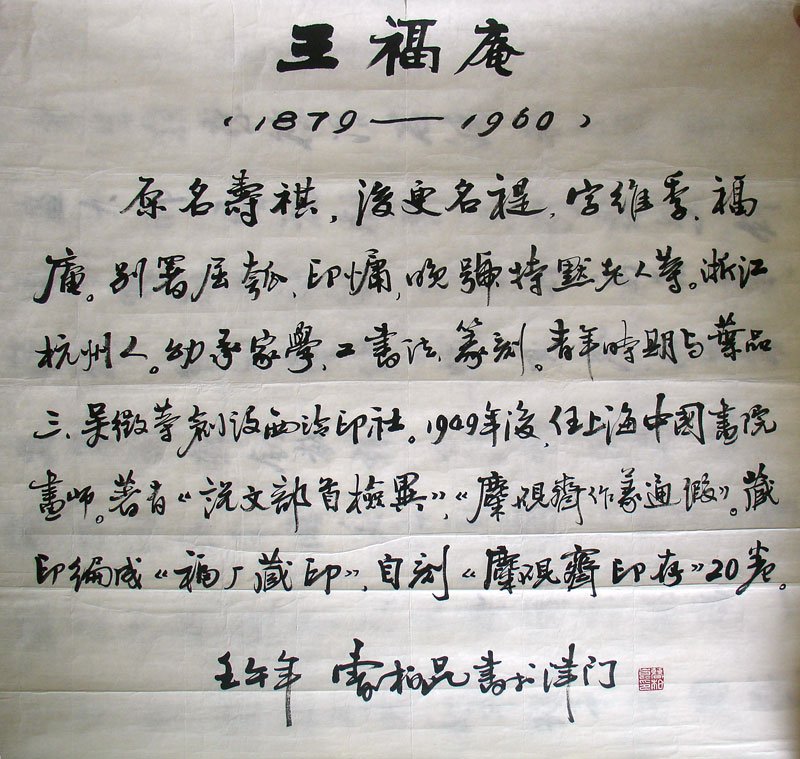 王福庵
（1879——1960）
原名壽祺，後更名禔，字維季、福
庵。别署屈瓠、印慵，晚號持默老人等。浙江
杭州人。幼承家學，工書法、篆刻。青年時期与葉品
三、吴徵等创设西泠印社。1949年後，任上海中國畫院
畫师。著有《説文部首檢異》，《麋硯齋作篆通假》。藏
印编成《福厂藏印》，自刻《麋硯齋印存》20卷。
壬午年 柏昆書於津门